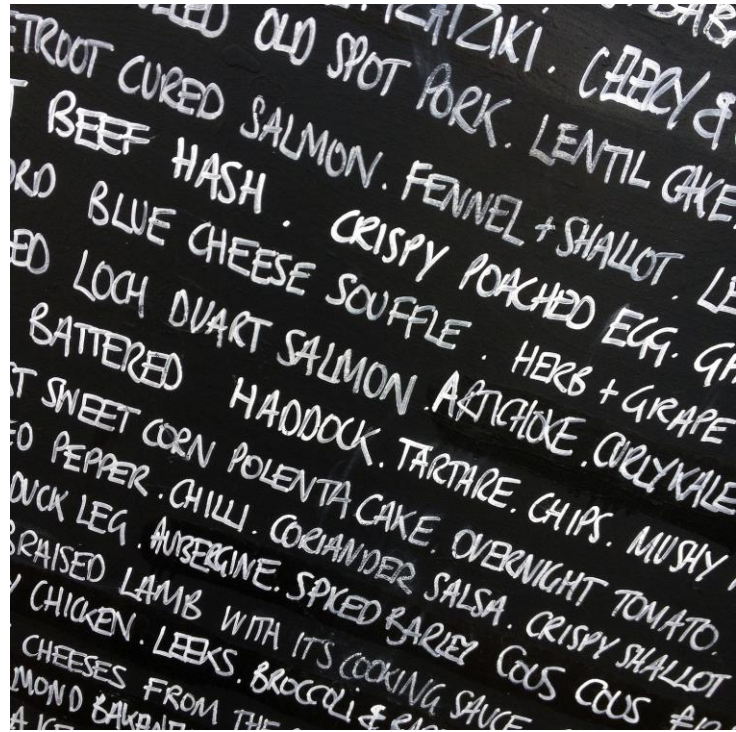 TZATZIKI. CELERY &
OLD SPOT PORK. LENTIL CAKE.
ETROOT CURED SALMON. FENNEL + SHALLOT. LE
T BEEF HASH. CRISPY POACHED EGG. G
ORD BLUE CHEESE SOUFFLE. HERB + GRAPE
ED LOCH DUART SALMON. ARTICHOKE. CURLY KALE
BATTERED HADDOCK. TARTARE. CHIPS. MUSHY
ST SWEET CORN POLENTA CAKE. OVERNIGHT TOMATO.
ED PEPPER. CHILLI. CORIANDER SALSA. CRISPY SHALLOT
DUCK LEG. AUBERGINE. SPICED BARLEY COUS COUS
BRAISED LAMB WITH ITS COOKING SAUCE
Y CHICKEN. LEEKS. BROCCOLI &
CHEESES FROM THE
MOND